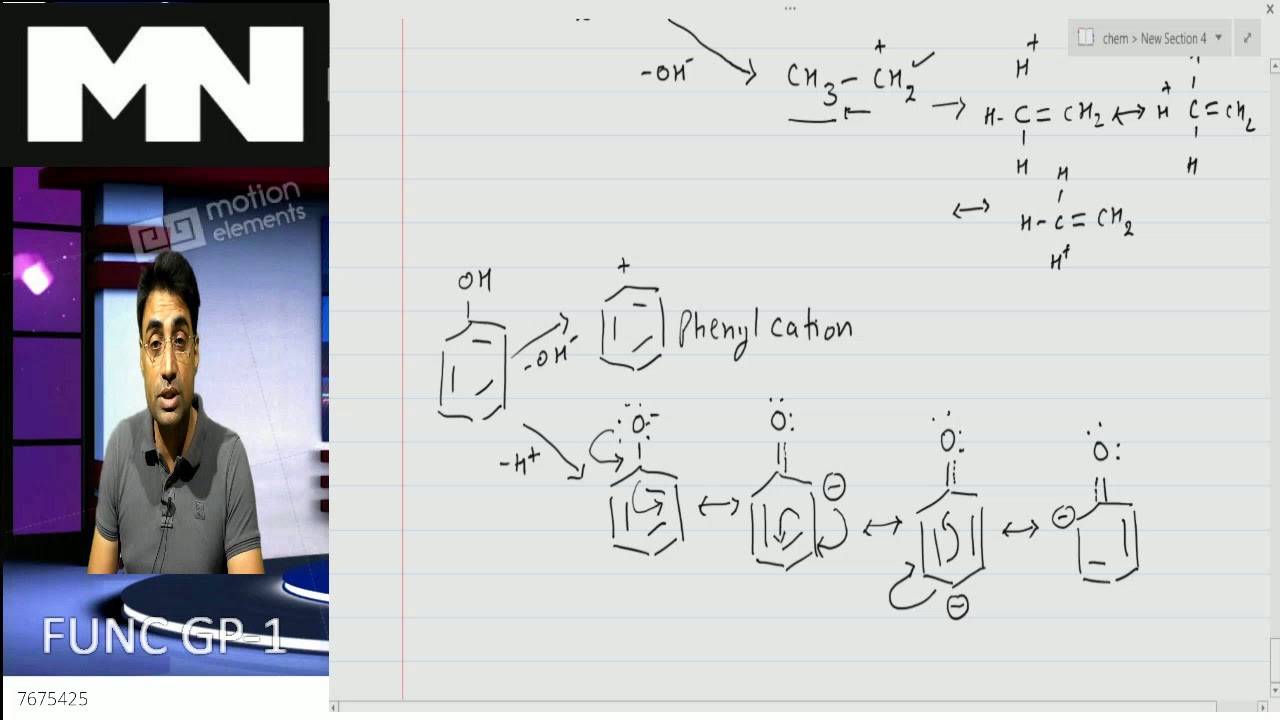 MN
motion
elements
FUNC GP-1
7675425
chem > New Section 4
-OH⁻
CH₃ – CH₂⁺
H⁺
H - C = CH₂ ↔ H⁺ C = CH₂
H
H
H
↔ H - C = CH₂
H⁺
OH
+
-OH⁻
Phenyl cation
-H⁺
:Ö:⁻ ↔ Ö: ⊖ ↔ Ö: ⊖ ↔ Ö: ⊖